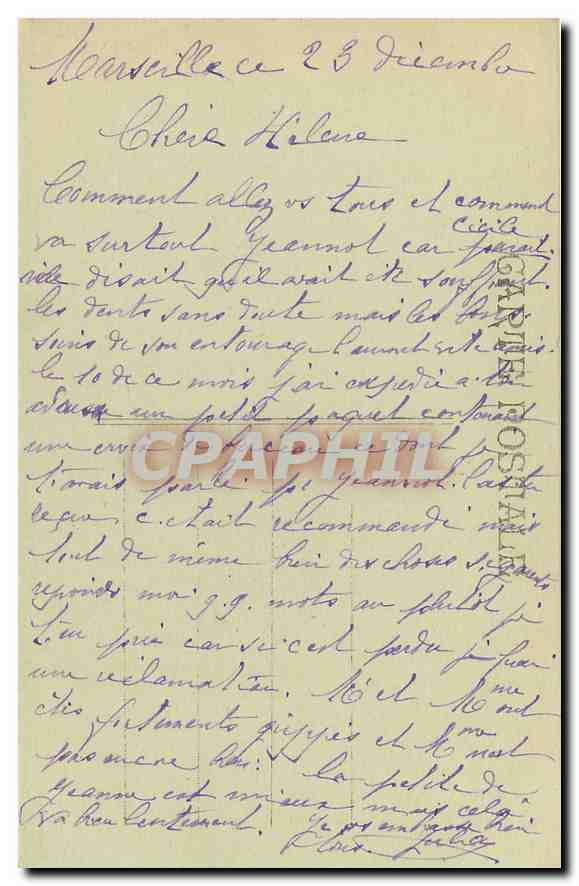 Marseille ce 23 décembre
Chère Hélène
Comment allez vs tous et comment
va surtout Jeannot car Cécile
disait qu'il avait été souffrant.
les dents sans doute mais les bons
soins de son entourage l'auront vite
le 10 de ce mois j'ai expédié à ton
adresse un petit paquet contenant
une croix dont je
t'avais parlé pr Jeannot. L'as tu
reçu c'était recommandé mais
tout de même bien des choses s'égarent
réponds moi q.q. mots au plutôt je
t'en prie car si c'est perdu je ferai
une réclamation. Mr et Mme ont
étés fortement grippés et Mme n'est
pas encore bien. la petite de
Jeanne est mieux mais cela
va bien lentement. Je vs embrasse bien
tous.
CARTE POSTALE
CPAPHIL